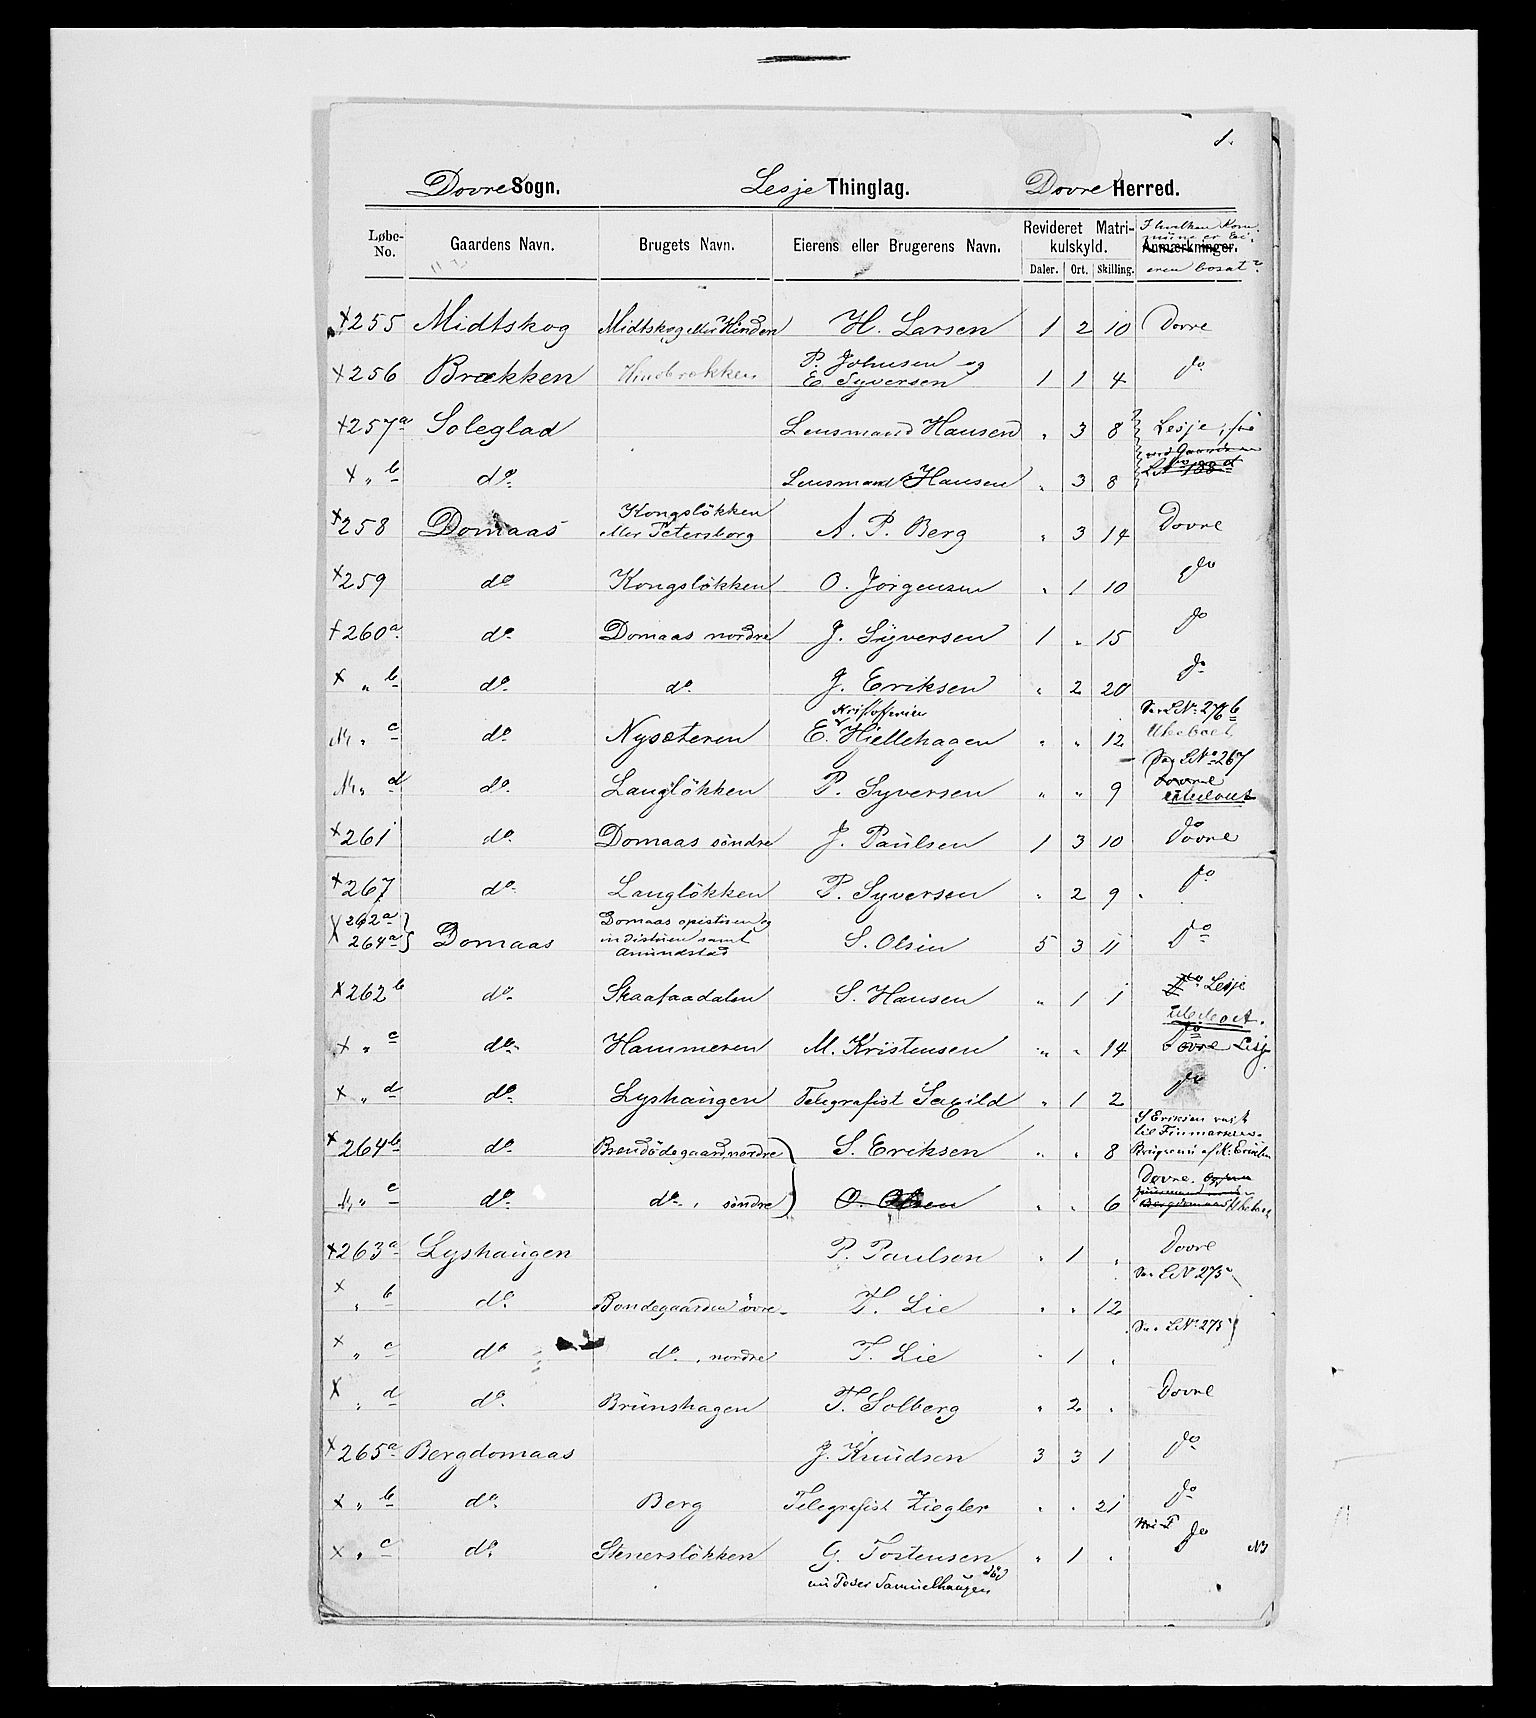 1.
Dovre Sogn. Lesje Thinglag. Dovre Herred.
Løbe-No. Gaardens Navn. Brugets Navn. Eierens eller Brugerens Navn. Revideret Matrikulskyld. Daler. Ort. Skilling. Anmærkninger. I hvilken Kommune er Eieren bosat?
+255 Midtskog Midtskog eller Hinden H. Larsen 1 2 10 Dovre
+256 Brækken Hindbrækken P. Johnsen og E. Syversen 1 1 4 do
+257a Soleglad Lensmand Hansen " 3 8 Lesje
+ " b do. Lensmand Hansen " 3 8 LNo 133d
+258 Domaas Kongsløkken eller Petersborg A. P. Berg " 3 14 Dovre
+259 do Kongsløkken O. Jørgensen " 1 10 do
+260a do. Domaas nordre J. Syversen 1 " 15 do
+ " b do. do. J. Eriksen " 2 20 do
" c do. Nysæteren E. Kristofersen Hjellehagen " " 12 Se LNo 276b Ubeboet
" d do. Langløkken P. Syversen " " 9 LNo 267 Dovre Ubeboet
+261 do. Domaas søndre J. Paulsen 1 3 10 do Dovre
+267 do. Langløkken P. Syversen " 2 9 do
+262a 264a } Domaas Domaas opistuen og nedistuen samt Amundstad S. Olsen 5 3 11 do
+262b do. Skaafaadalen S. Hansen " 1 1 do Lesje Ubeboet.
+ " c do. Hammeren M. Kristensen " " 14 do Dovre Lesje
+ " d do. Lyshaugen Telegrafist Saxild " 1 2 do
+264b do. Brændødegaard, nordre S. Eriksen " " 8 S Eriksen reist til Finmarken. Bruges nu af K. Eriksen
" c do. do. , søndre O. Olsen " " 6 Dovre. Bergdomaas Ubeboet
+263a Lyshaugen P. Paulsen " 1 " Dovre
+ " b do. Bondegaarden øvre T. Lie " " 12 Se LNo 275
+ " c do do. , nordre T. Lie " 1 " Se LNo 275
+ " d do. Brunshagen T. Solberg " 2 " Dovre
+265a Bergdomaas J. Knudsen 3 3 1 do
+ " b do. Berg Telegrafist Ziegler " " 21 do
+ " c do. Stenersløkken G. Tostensen død " 1 " do
nu Peder Samuelhaugen